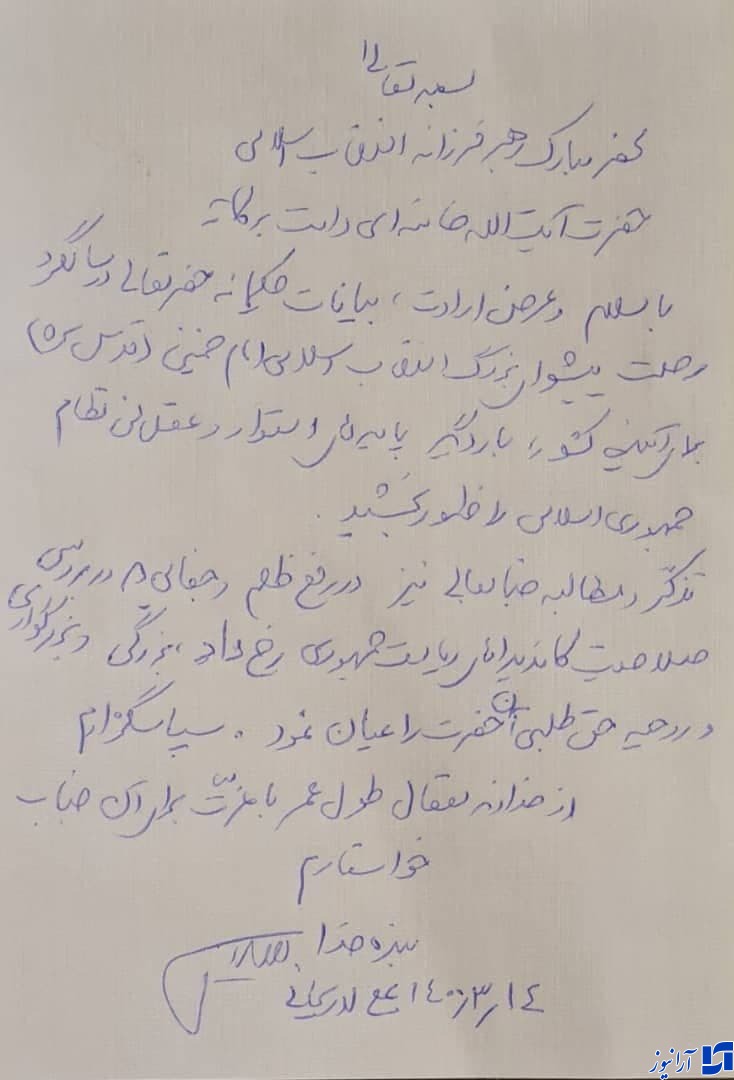 بسمه تعالی
محضر مبارک رهبر فرزانه انقلاب اسلامی
حضرت آیت الله خامنه ای دامت برکاته
با سلام و عرض ارادت، بیانات حکیمانه حضرتعالی در سالگرد
رحلت پیشوای بزرگ انقلاب اسلامی امام خمینی (قدس سره)
برای آتیه کشور، بار دیگر پایه های استوار و عقلانی نظام
جمهوری اسلامی را ظهور بخشید.
تذکر و مطالبه جنابعالی نیز در رفع ظلم و جفایی که در بررسی
صلاحیت کاندیداهای ریاست جمهوری رخ داد، بزرگی و بزرگواری
و روحیه حق طلبی آن حضرت را عیان نمود. سپاسگزارم
از خداوند متعال طول عمر با عزت برای آن جناب
خواستارم
بنده خدا
۱۴۰۰/۳/۱۴ علی لاریجانی
آرانیوز